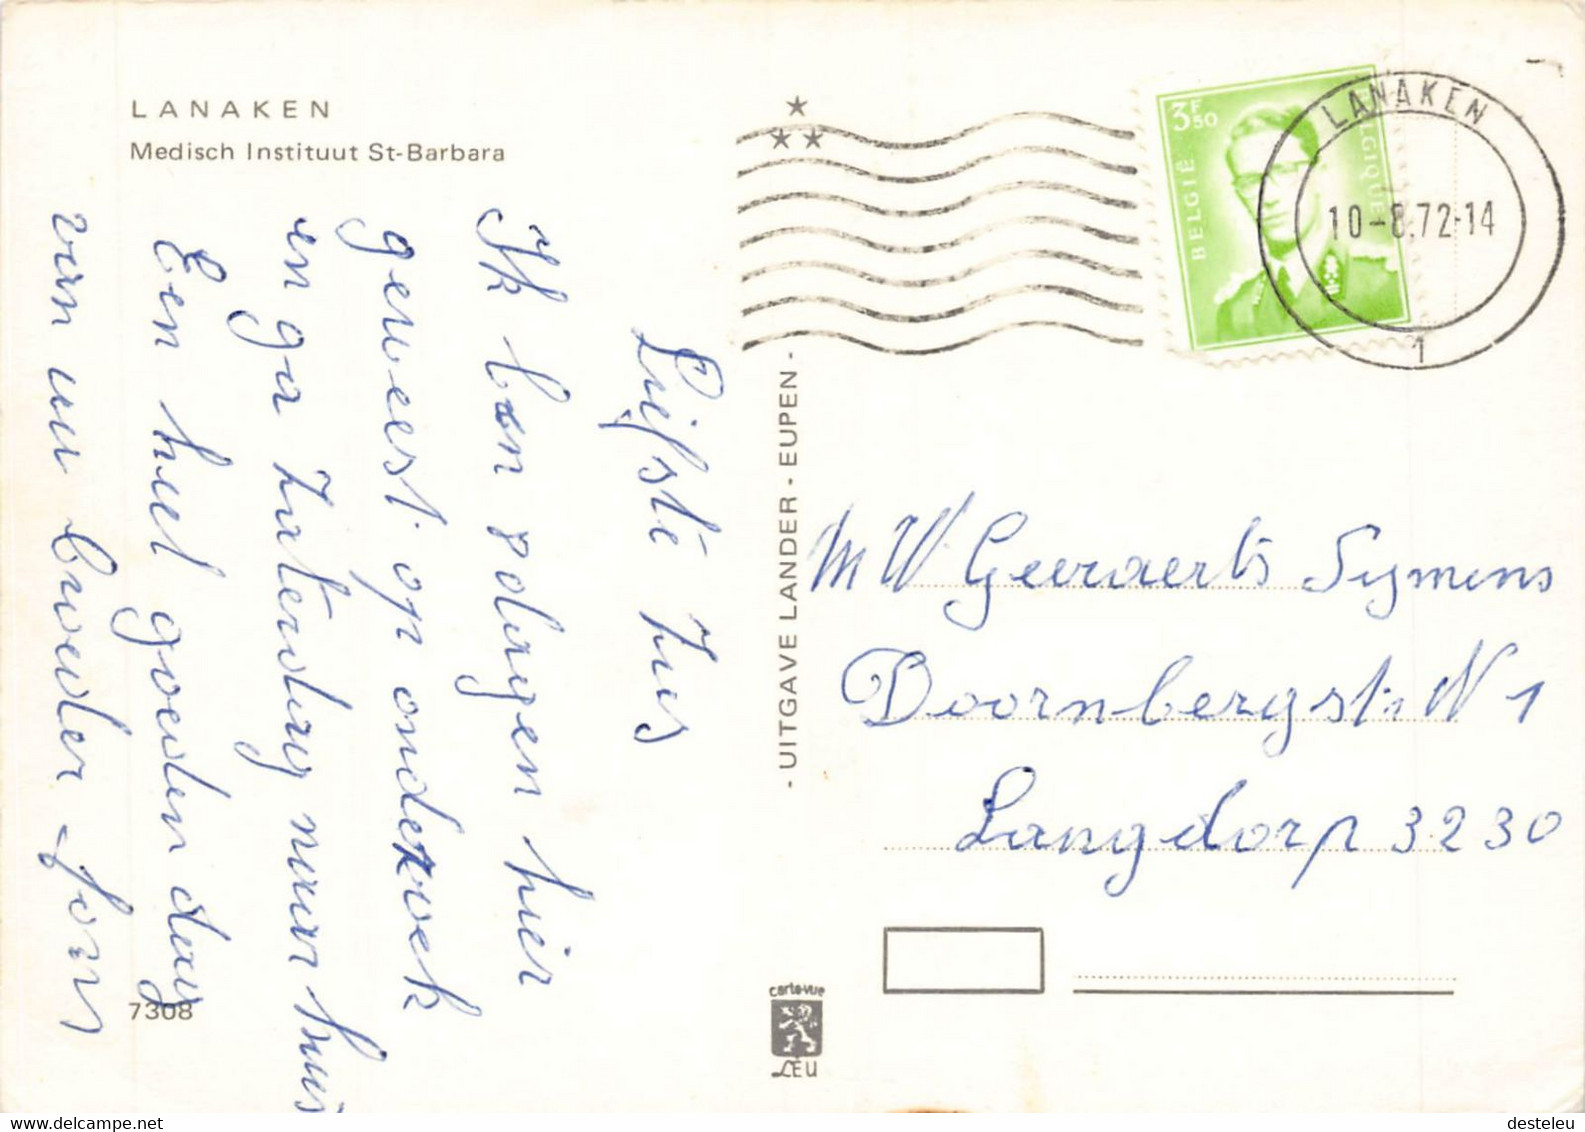 LANAKEN
Medisch Instituut St-Barbara
Liefste Zus
Ik ben 8 dagen hier
geweest op onderzoek
en ga zaterdag naar huis
Een heel goeden dag
van uw broeder Jons
7308
- UITGAVE LANDER - EUPEN -
carte-vue
LÉU
3F50
BELGIË
BELGIQUE
LANAKEN
10-8.72-14
1
MW Geeraerts Symens
Doornbergst. N 1
Langdorp 3230
desteleu